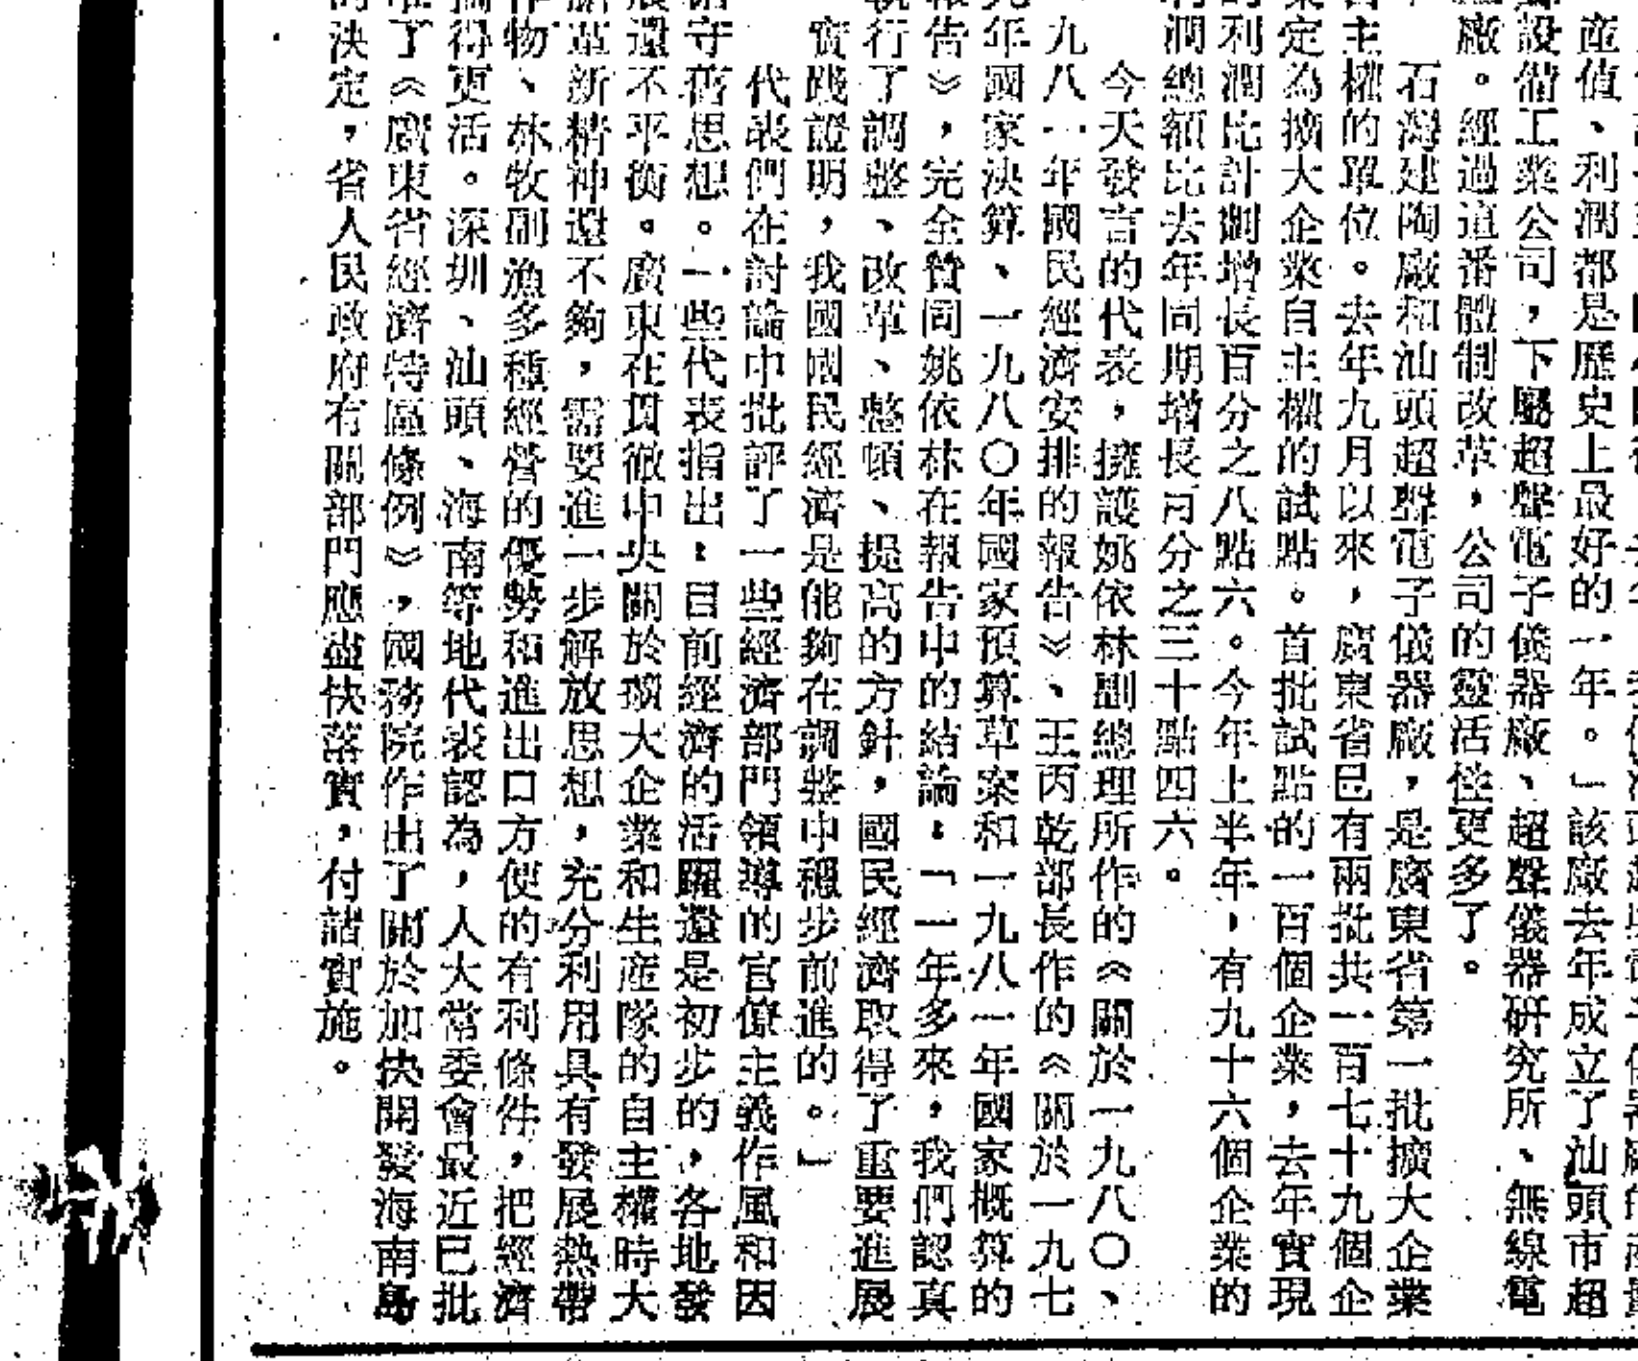 産值、利潤都是歷史上最好的一年。」該廠去年成立了汕頭市超
設備工業公司，下屬超聲電子儀器廠、超聲儀器研究所、無線電
廠。經過這番體制改革，公司的靈活性更多了。
石灣建陶廠和汕頭超聲電子儀器廠，是廣東省第一批擴大企業
主權的單位。去年九月以來，廣東省已有兩批共一百七十九個企
定為擴大企業自主權的試點。首批試點的一百個企業，去年實現
利潤比計劃增長百分之八點六。今年上半年，有九十六個企業的
利潤總額比去年同期增長百分之三十點四六。
今天發言的代表，擁護姚依林副總理所作的《關於一九八〇、
九八一年國民經濟安排的報告》、王丙乾部長作的《關於一九七
年國家決算、一九八〇年國家預算草案和一九八一年國家概算的
報告》，完全贊同姚依林在報告中的結論：「一年多來，我們認真
執行了調整、改革、整頓、提高的方針，國民經濟取得了重要進展
實踐證明，我國國民經濟是能夠在調整中穩步前進的。」
代表們在討論中批評了一些經濟部門領導的官僚主義作風和因
守舊思想。一些代表指出：目前經濟的活躍還是初步的，各地發
展還不平衡。廣東在貫徹中央關於擴大企業和生産隊的自主權時大
革新精神還不夠，需要進一步解放思想，充分利用具有發展熱帶
作物、林牧副漁多種經營的優勢和進出口方便的有利條件，把經濟
搞得更活。深圳、汕頭、海南等地代表認為，人大常委會最近已批
准了《廣東省經濟特區條例》，國務院作出了關於加快開發海南島
的決定，省人民政府有關部門應盡快落實，付諸實施。